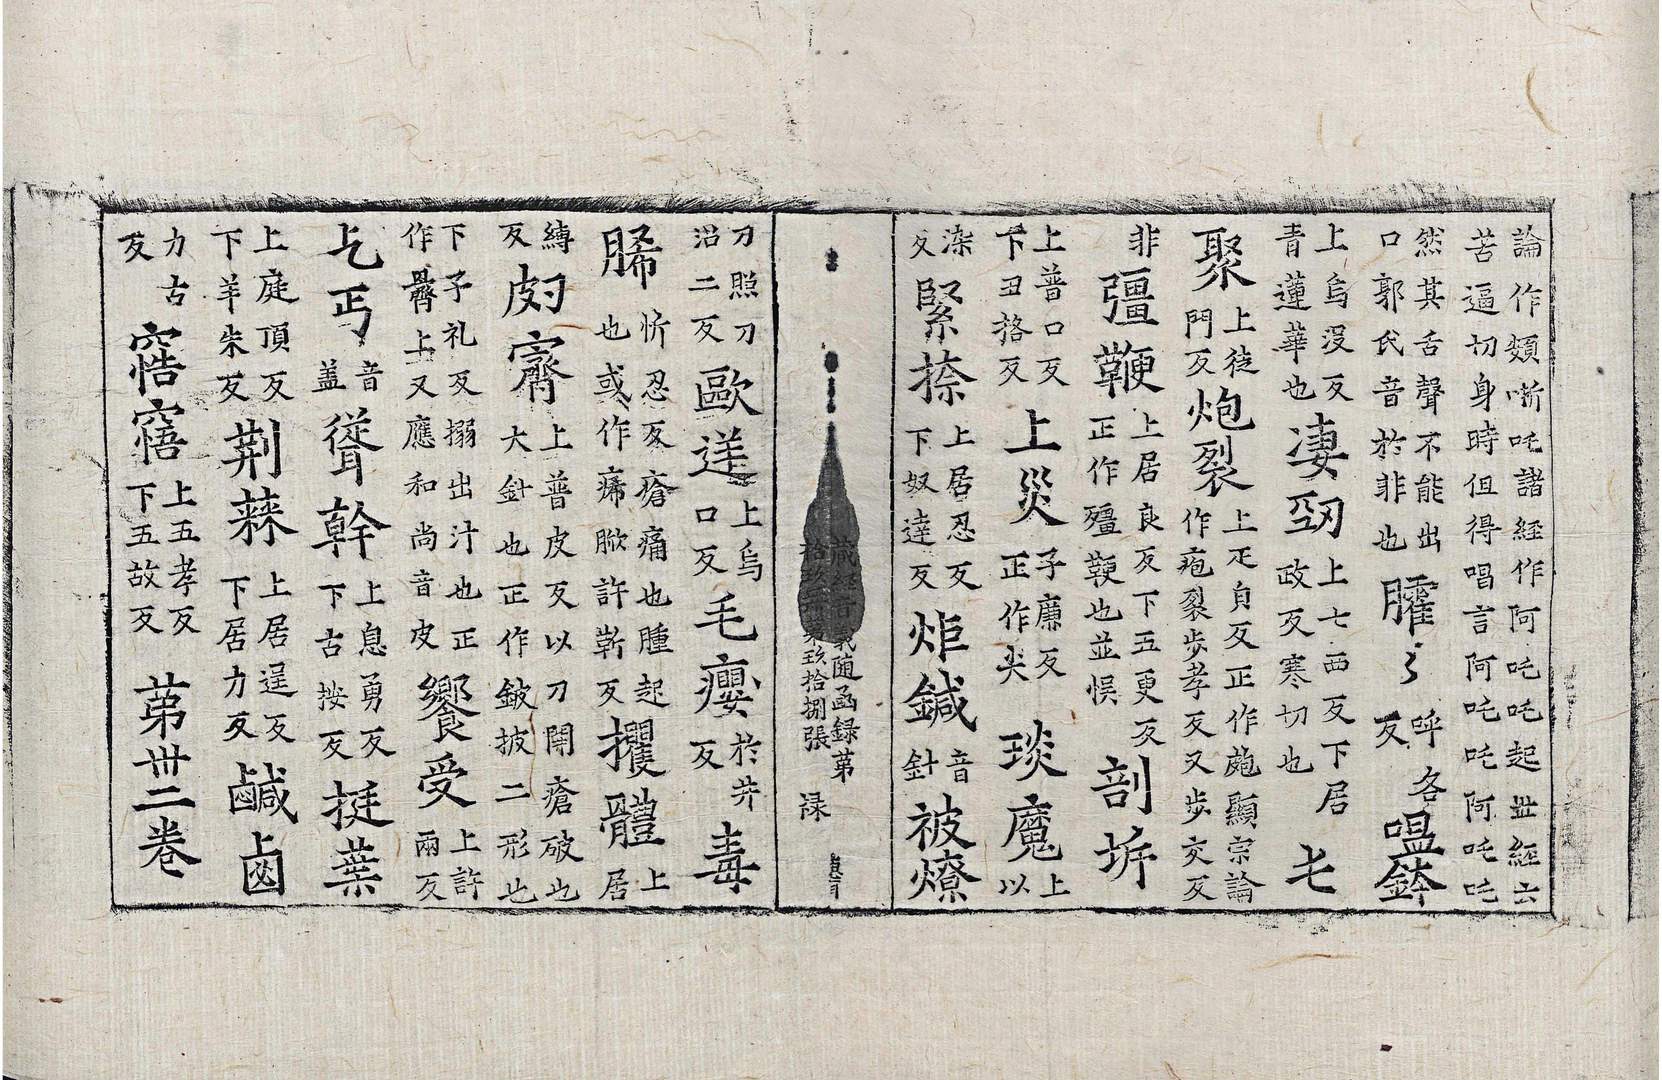 論作頞哳吒諸經作阿吒吒起世經云
苦逼切身時但得唱言阿吒吒阿吒吒
然其舌聲不能出
口郭氏音於非也
臛〻
呼各
反
嗢鉢
上烏沒反
青蓮華也
凄勁
上七西反下居
政反寒切也
𠤎
聚
上徒
門反
炮裂
上疋皃反正作皰顯宗論
作疱裂步孝反又步交反
非
彊鞕
上居良反下五更反
正作殭鞕也並悮
剖坼
上普口反
下丑挌反
上災
子廉反
正作尖
琰魔
上以
染
反
緊捺
上居忍反
下奴達反
炬鍼
音
針
被燎
藏經音義隨函録第
拾玖冊 第玖拾捌張 禄
力照力
沼二反
歐送
上烏
口反
毛癭
於井
反
毒
脪
忻忍反瘡痛也腫起
也或作痛脪許靳反
攫體
上居
縛
反
㿭𤻞
上普皮反以刀開瘡破也
大針也正作鈹披二形也
下子礼反搦出汁也正
作𣩠上又應和尚音皮
饗受
上許
兩反
乞丐
音
盖
聳幹
上息勇反
下古按反
挺葉
上庭頂反
下羊朱反
荆棘
上居逞反
下居力反
鹹鹵
力古
反
窖寤
上五孝反
下五故反
苐卅二卷